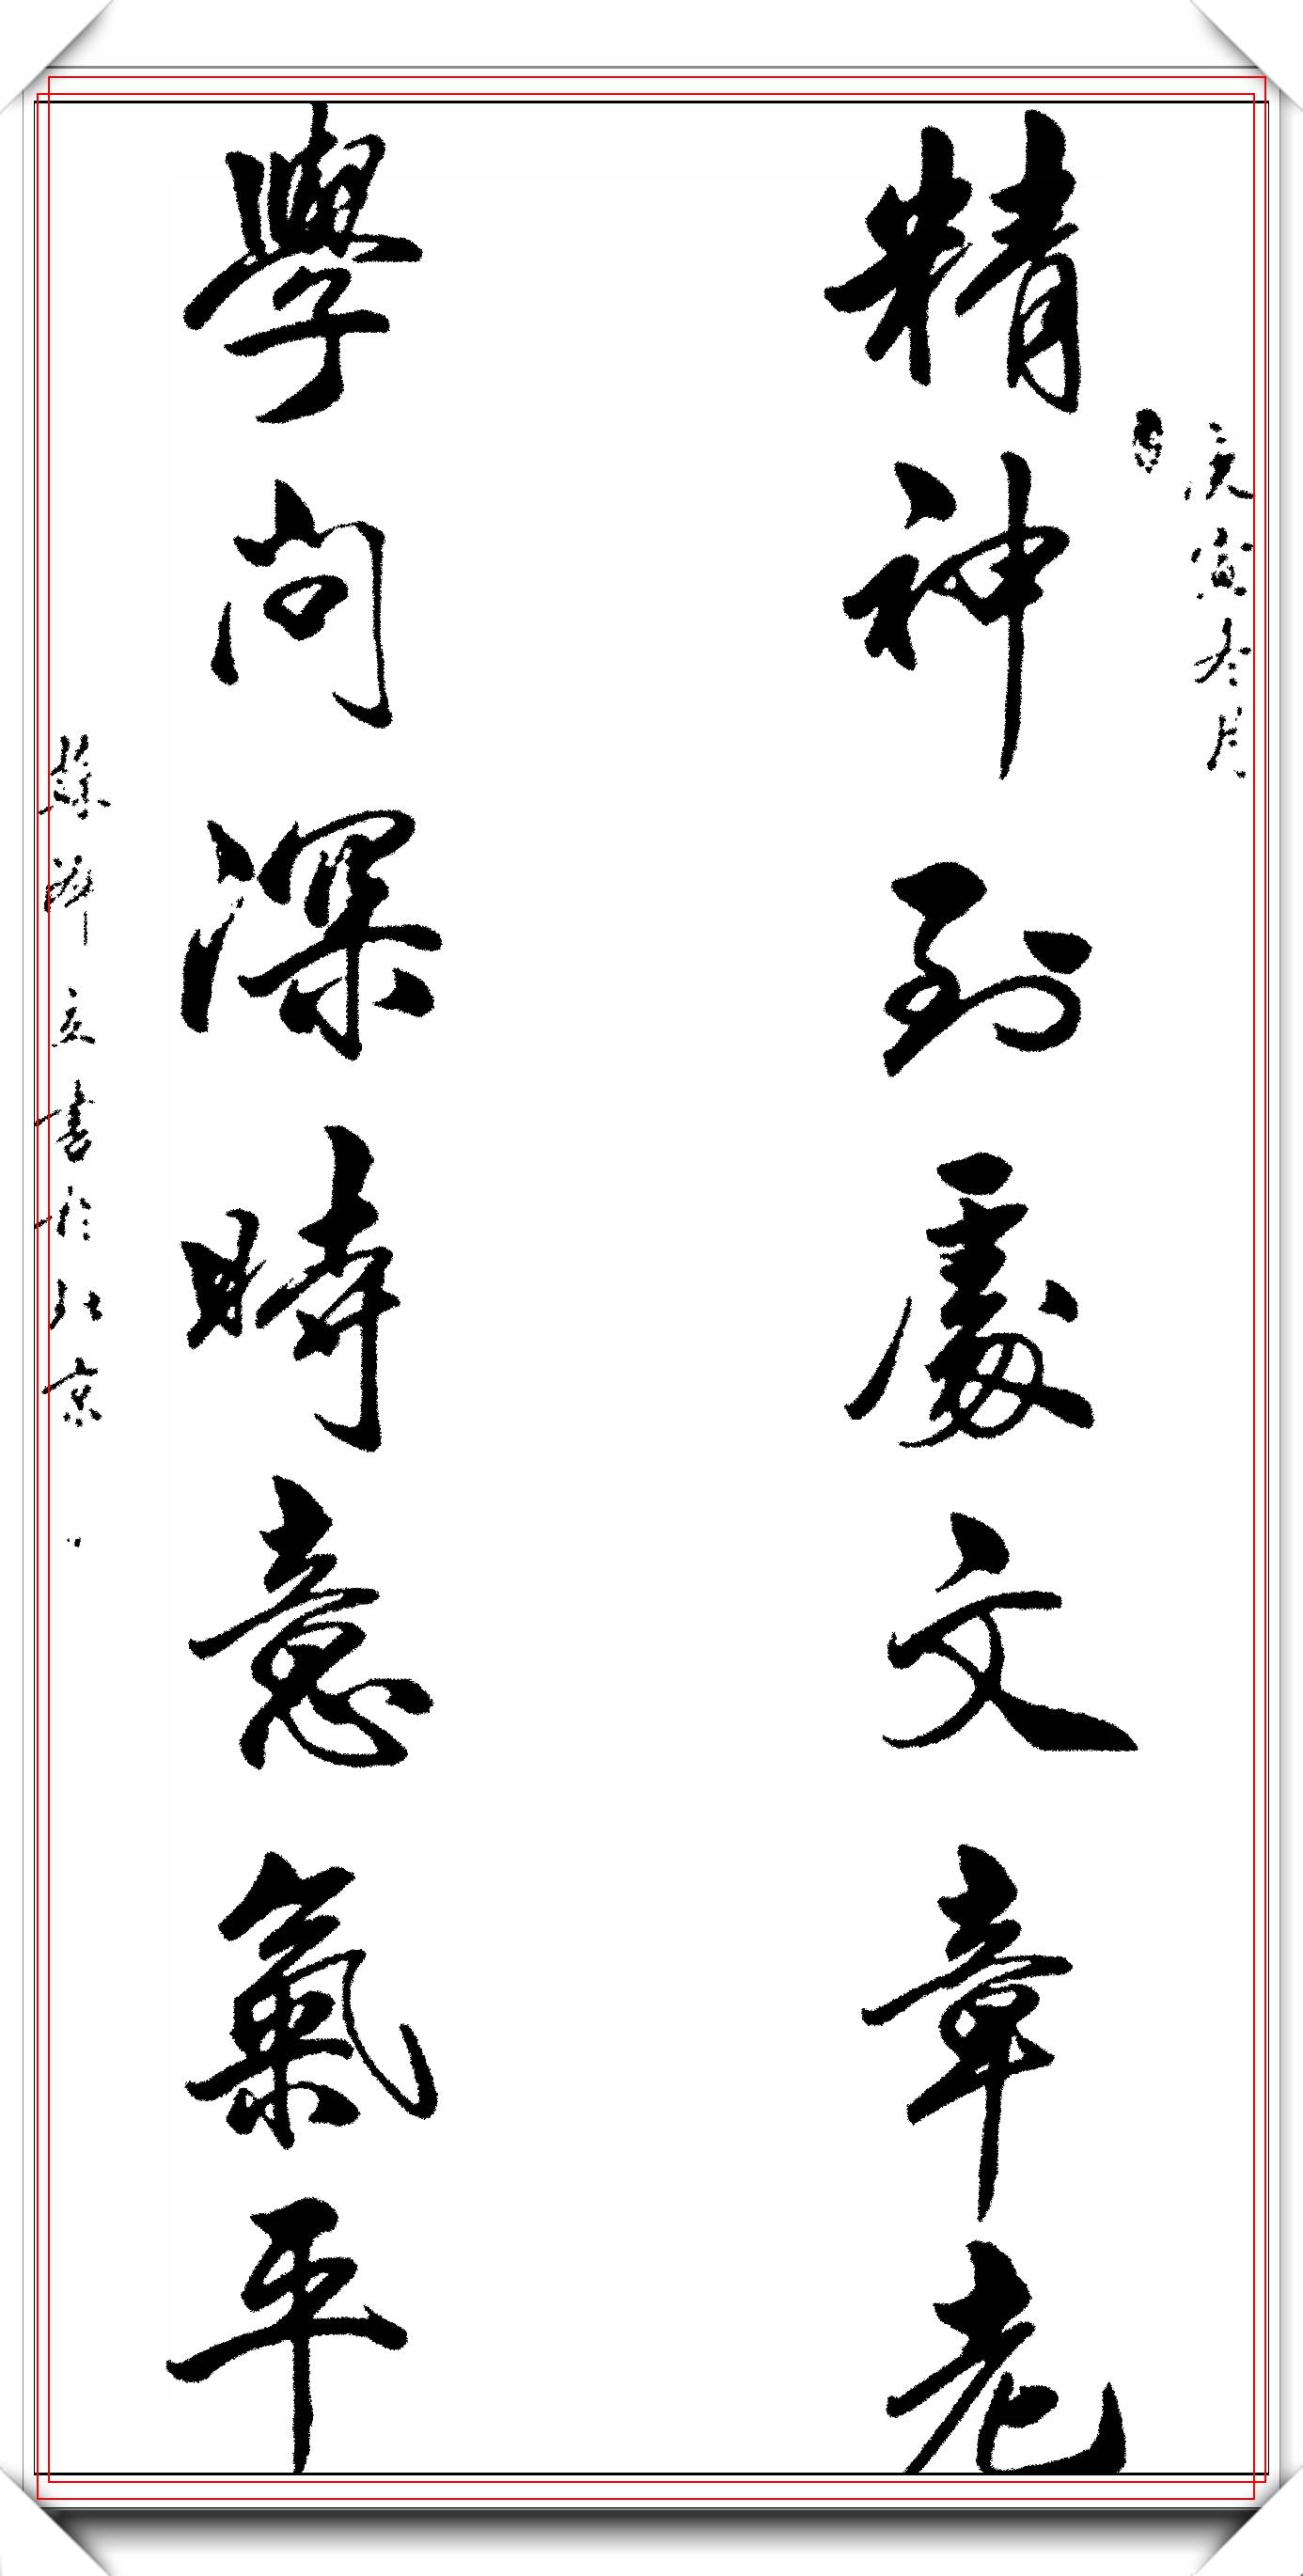 庚寅冬月
精神到處文章老
學問深時意氣平
蘇澤立書於北京